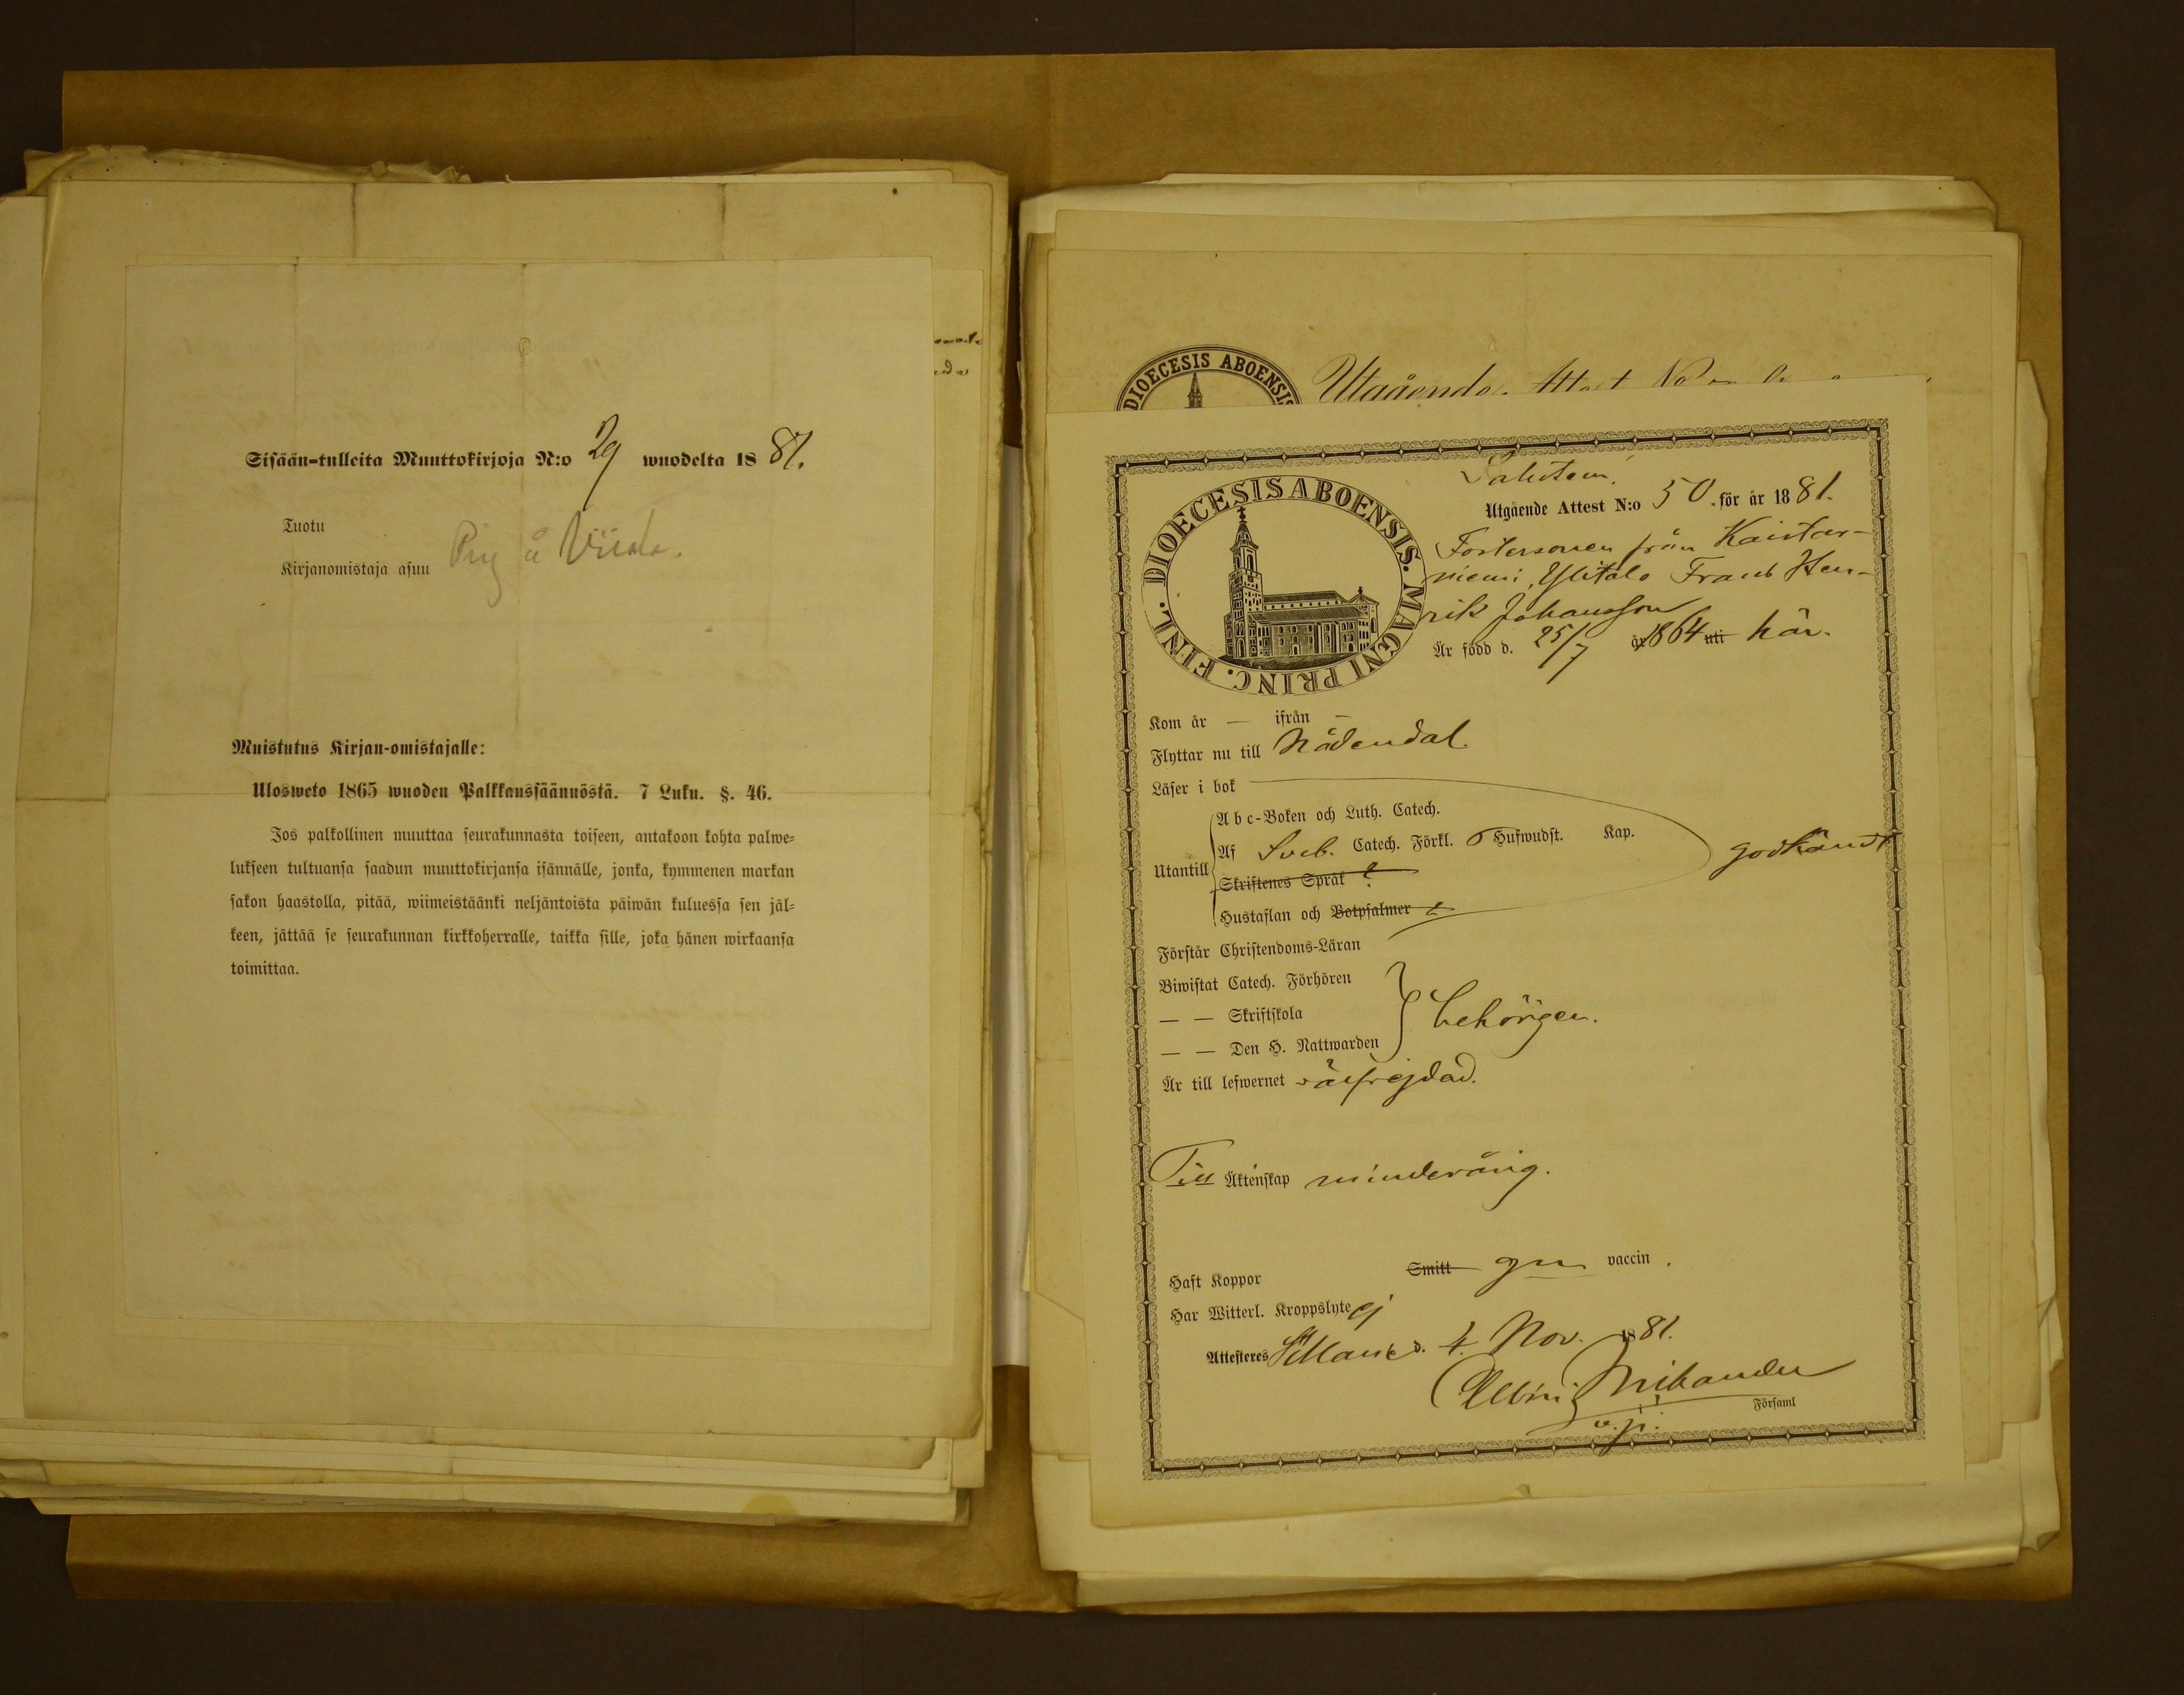 Sisään-tulleita Muuttokirjoja N:o 29 wuodelta 1881.
Tuotu
Kirjanomistaja asuu Pig å Viiala.
Muistutus Kirjan-omistajalle:
Ulosweto 1865 wuoden Palkkaussäännöstä. 7 Luku. §. 46.
Jos palkollinen muuttaa seurakunnasta toiseen, antakoon kohta palwe-
lukseen tultuansa saadun muuttokirjansa isännälle, jonka, kymmenen markan
sakon haastolla, pitää, wiimeistäänki neljäntoista päiwän kuluessa sen jäl-
keen, jättää se seurakunnan kirkkoherralle, taikka sille, joka hänen wirkaansa
toimittaa.
DIOECESIS ABOENSIS
Utgående Attest No
DIOECESIS ABOENSIS. MAGNI PRINC. FINL.
Utgående Attest N:o 50. för år 1881.
Fostersonen från Kaistar-
niemi, Ylitalo Frans Hen-
rik Johansson
Är född d. 25/7 år 1864 uti här.
Kom år — ifrån —
Flyttar nu till Nådendal.
Läser i bok
Abc-Boken och Luth. Catech.
Utantill Af Sveb. Catech. Förkl. 5 Hufwudst. Kap. godkändt
Skriftenes Språk
Hustaflan och Botpsalmer
Förstår Christendoms-Läran
Biwistat Catech. Förhören
— — Skriftskola behörigen.
— — Den H. Nattwarden
Är till lefwernet välfrejdad.
Till Äktenskap minderårig.
Haft Koppor Smitt gm vaccin.
Har Witterl. Kroppslyte ej
Attesteres d. 4. Nov. 1881.
Nikander
Församl
v.p.